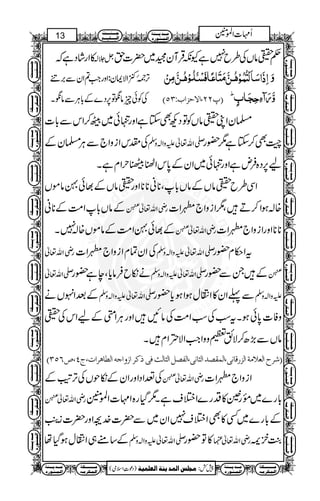 13
اُمہات المؤمنین
حکم حقیقی ماں کی طرح نہیں ہے کیونکہ قرآن مجید میں حضرت حق جل جلالہ کا ارشاد ہے کہ
وَ اِذَا سَاَلْتُمُوْهُنَّ مَتَاعًا فَسْـَٔلُوْهُنَّ مِنْ
ترجمۂ کنز الایمان: اور جب تم ان سے برتنے
وَّرَآءِ حِجَابٍ ؕ (پ ۲۲، الاحزاب: ۵۳)
کی کوئی چیز مانگو تو پردے کے باہر سے مانگو۔
مسلمان اپنی حقیقی ماں کو تو دیکھ بھی سکتا ہے اور تنہائی میں اس کے پاس بیٹھ کر اس سے بات
چیت بھی کر سکتا ہے مگر حضور صلی اللہ تعالٰی علیہ والہ وسلم کی مقدس ازواج سے ہر مسلمان کے
لیے پردہ فرض ہے اور تنہائی میں ان کے پاس اٹھنا بیٹھنا حرام ہے۔
اسی طرح حقیقی ماں کے ماں باپ، نانی نانا اور حقیقی ماں کے بھائی بہن ماموں
خالہ ہوا کرتے ہیں مگر ازواج مطہرات رضی اللہ تعالٰی عنہن کے ماں باپ امت کے نانی
نانا اور ازواج مطہرات رضی اللہ تعالٰی عنہن کے بھائی بہن امت کے ماموں خالہ نہیں۔
یہ احکام حضور صلی اللہ تعالٰی علیہ والہ وسلم کی ان تمام ازواج مطہرات رضی اللہ تعالٰی
عنہن کے ہیں جن سے حضور صلی اللہ تعالٰی علیہ والہ وسلم نے نکاح فرمایا، چاہے حضور صلی اللہ تعالٰی
علیہ والہ وسلم سے پہلے ان کا انتقال ہوا ہو یا حضور صلی اللہ تعالٰی علیہ والہ وسلم کے بعد انہوں نے
وفات پائی ہو۔ یہ سب کی سب امت کی مائیں ہیں اور ہر امتی کے لیے اس کی حقیقی
ماں سے بڑھ کر لائق تعظیم و واجب الاحترام ہیں۔
(شرح العلامة الزرقانی، المقصد الثانی، الفصل الثالث فی ذکر ازواجه الطاهرات، ج٤، ص٣٥٦)
ازواج مطہرات رضی اللہ تعالٰی عنہن کی تعداد اور ان کے نکاحوں کی ترتیب کے
بارے میں مؤرخین کا قدرے اختلاف ہے۔ مگر گیارہ امہات المؤمنین رضی اللہ تعالٰی عنہن
کے بارے میں کسی کا بھی اختلاف نہیں ان میں سے حضرت خدیجہ اور حضرت زینب
بنت خزیمہ رضی اللہ تعالٰی عنہما کا تو حضور صلی اللہ تعالٰی علیہ والہ وسلم کے سامنے ہی انتقال ہو گیا تھا
پیش کش: مجلس المدینة العلمیة (دعوتِ اسلامی)